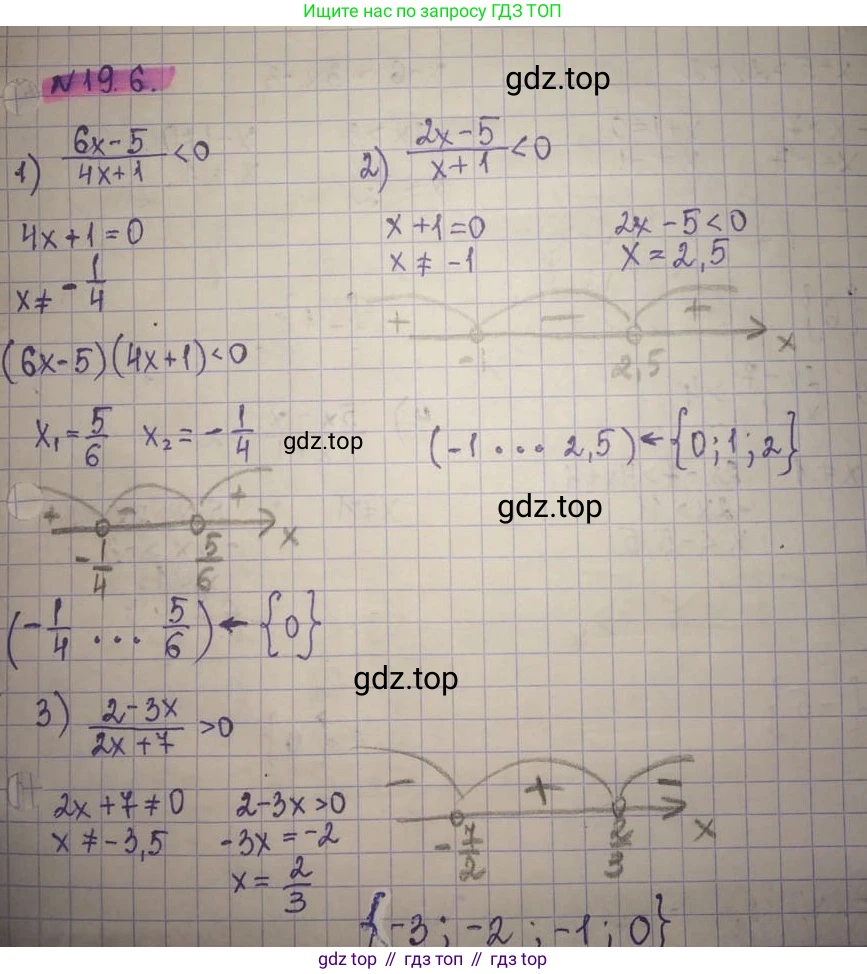 Ищите нас по запросу ГДЗ ТОП
N 19.6.
gdz.top
1) (6x-5)/(4x+1) < 0
4x+1=0
x≠ -1/4
(6x-5)(4x+1)<0
x₁=5/6 x₂= -1/4
gdz.top
+ - + x
-1/4 5/6
(-1/4 ... 5/6) ← {0}
2) (2x-5)/(x+1) < 0
x+1=0 2x-5<0
x ≠ -1 x=2,5
+ — + x
-1 2,5
(-1 ... 2,5) ← {0;1;2}
gdz.top
gdz.top
3) (2-3x)/(2x+7) >0
2x+7≠0 2-3x>0
x≠-3,5 -3x=-2
x= 2/3
- + - x
-7/2 2/3
{-3; -2; -1; 0}
gdz.top // гдз топ // gdz top // гдз top